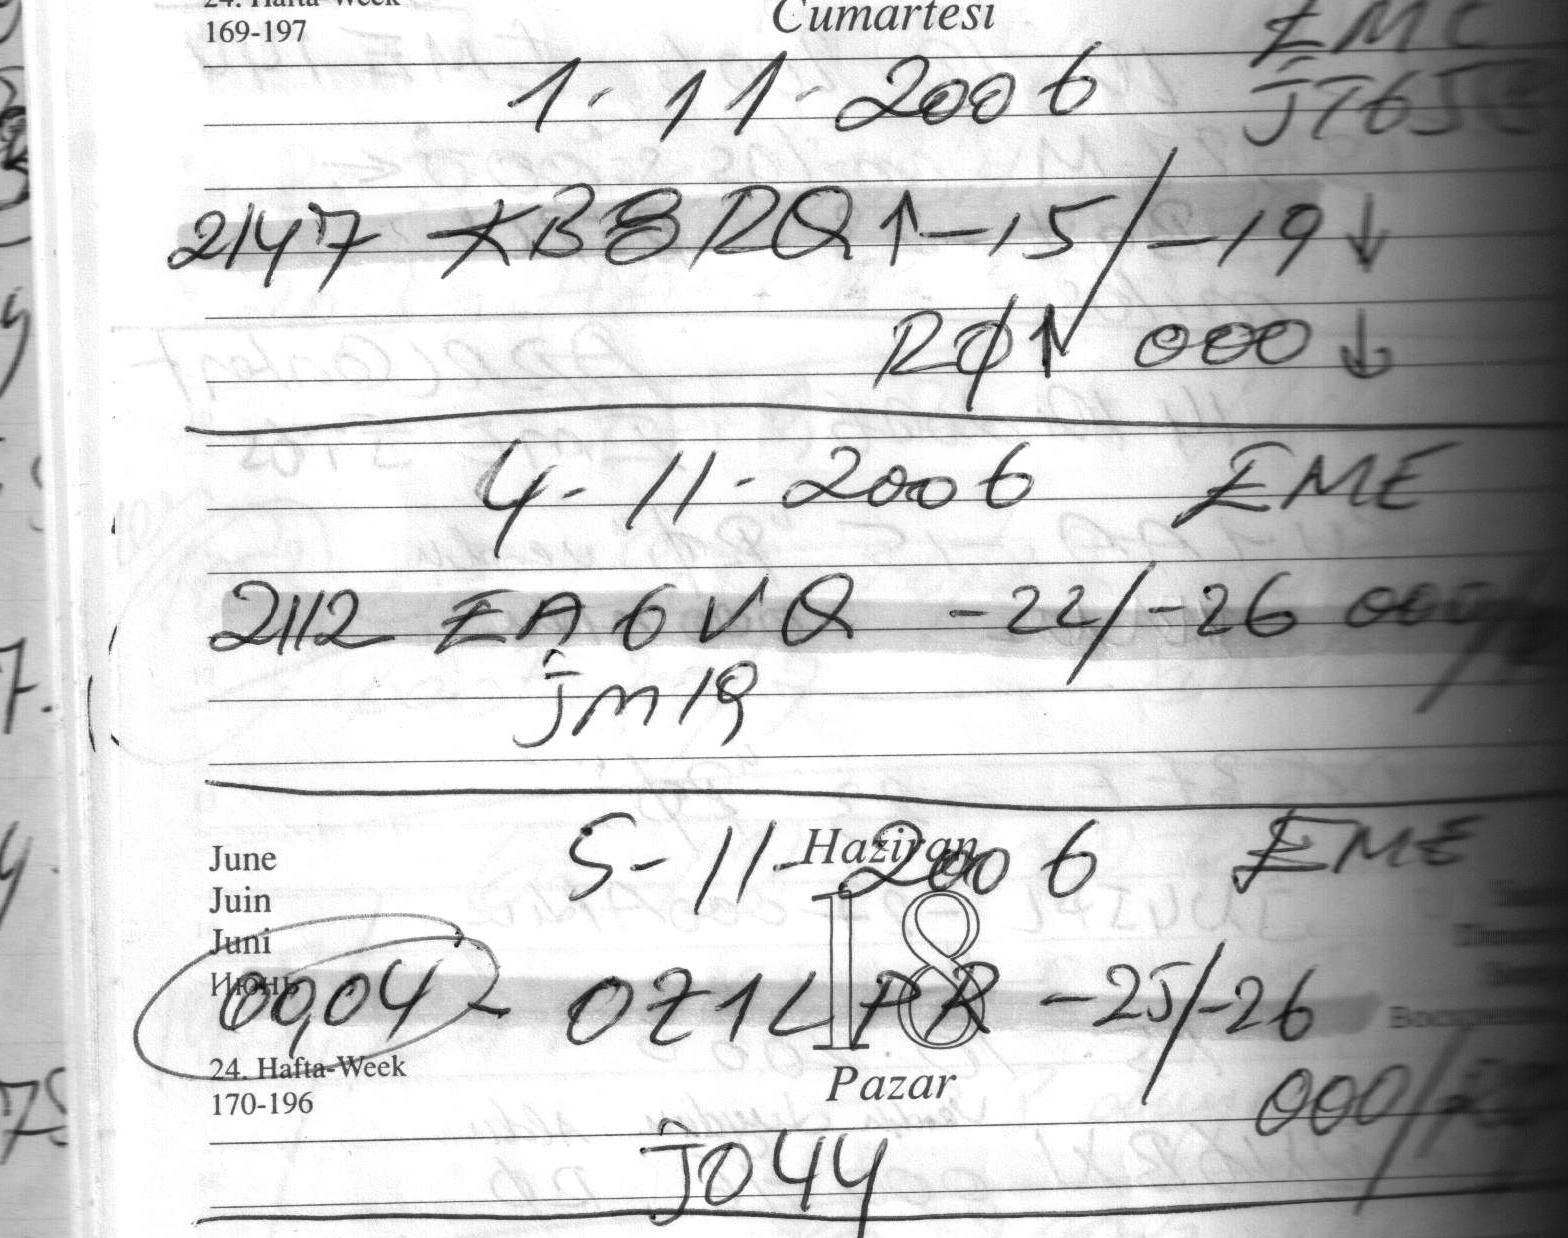 24. Hafta-Week
169-197
Cumartesi
EME
1-11-2006 JT65
2147 KB8RQ ↑-15/-19↓
RO↑ 000↓
4-11-2006 EME
2112 EA6VQ -22/-26 000
jm19
June
Juin
Juni
Июнь
Haziran
18
5-11-2006 EME
00,04 OZ1LPR -25/-26
24. Hafta-Week
170-196
Pazar
000/
JO44